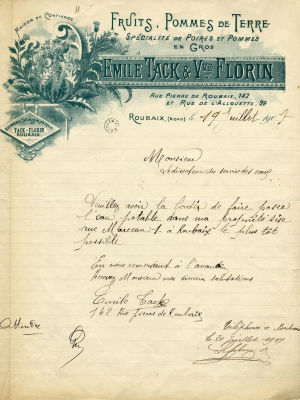 MAISON DE CONFIANCE
FRUITS, POMMES DE TERRE
SPÉCIALITÉ DE POIRES ET POMMES
EN GROS
EMILE TACK & Vve FLORIN
RUE PIERRE DE ROUBAIX, 142
ET RUE DE L'ALLOUETTE, 99
TACK-FLORIN
ROUBAIX
ROUBAIX, (NORD) le 19 Juillet 190
Monsieur
le directeur du service des eaux
Veuillez avoir la bonté de faire poser
l'eau potable dans ma propriété sise
rue Marceau 1 à Roubaix le plus tôt
possible
En vous remerciant à l'avance
recevez Monsieur mes sincères salutations
Emile Tack
142 Rue Pierre de Roubaix
attendre
Roubaix
le 20 Juillet